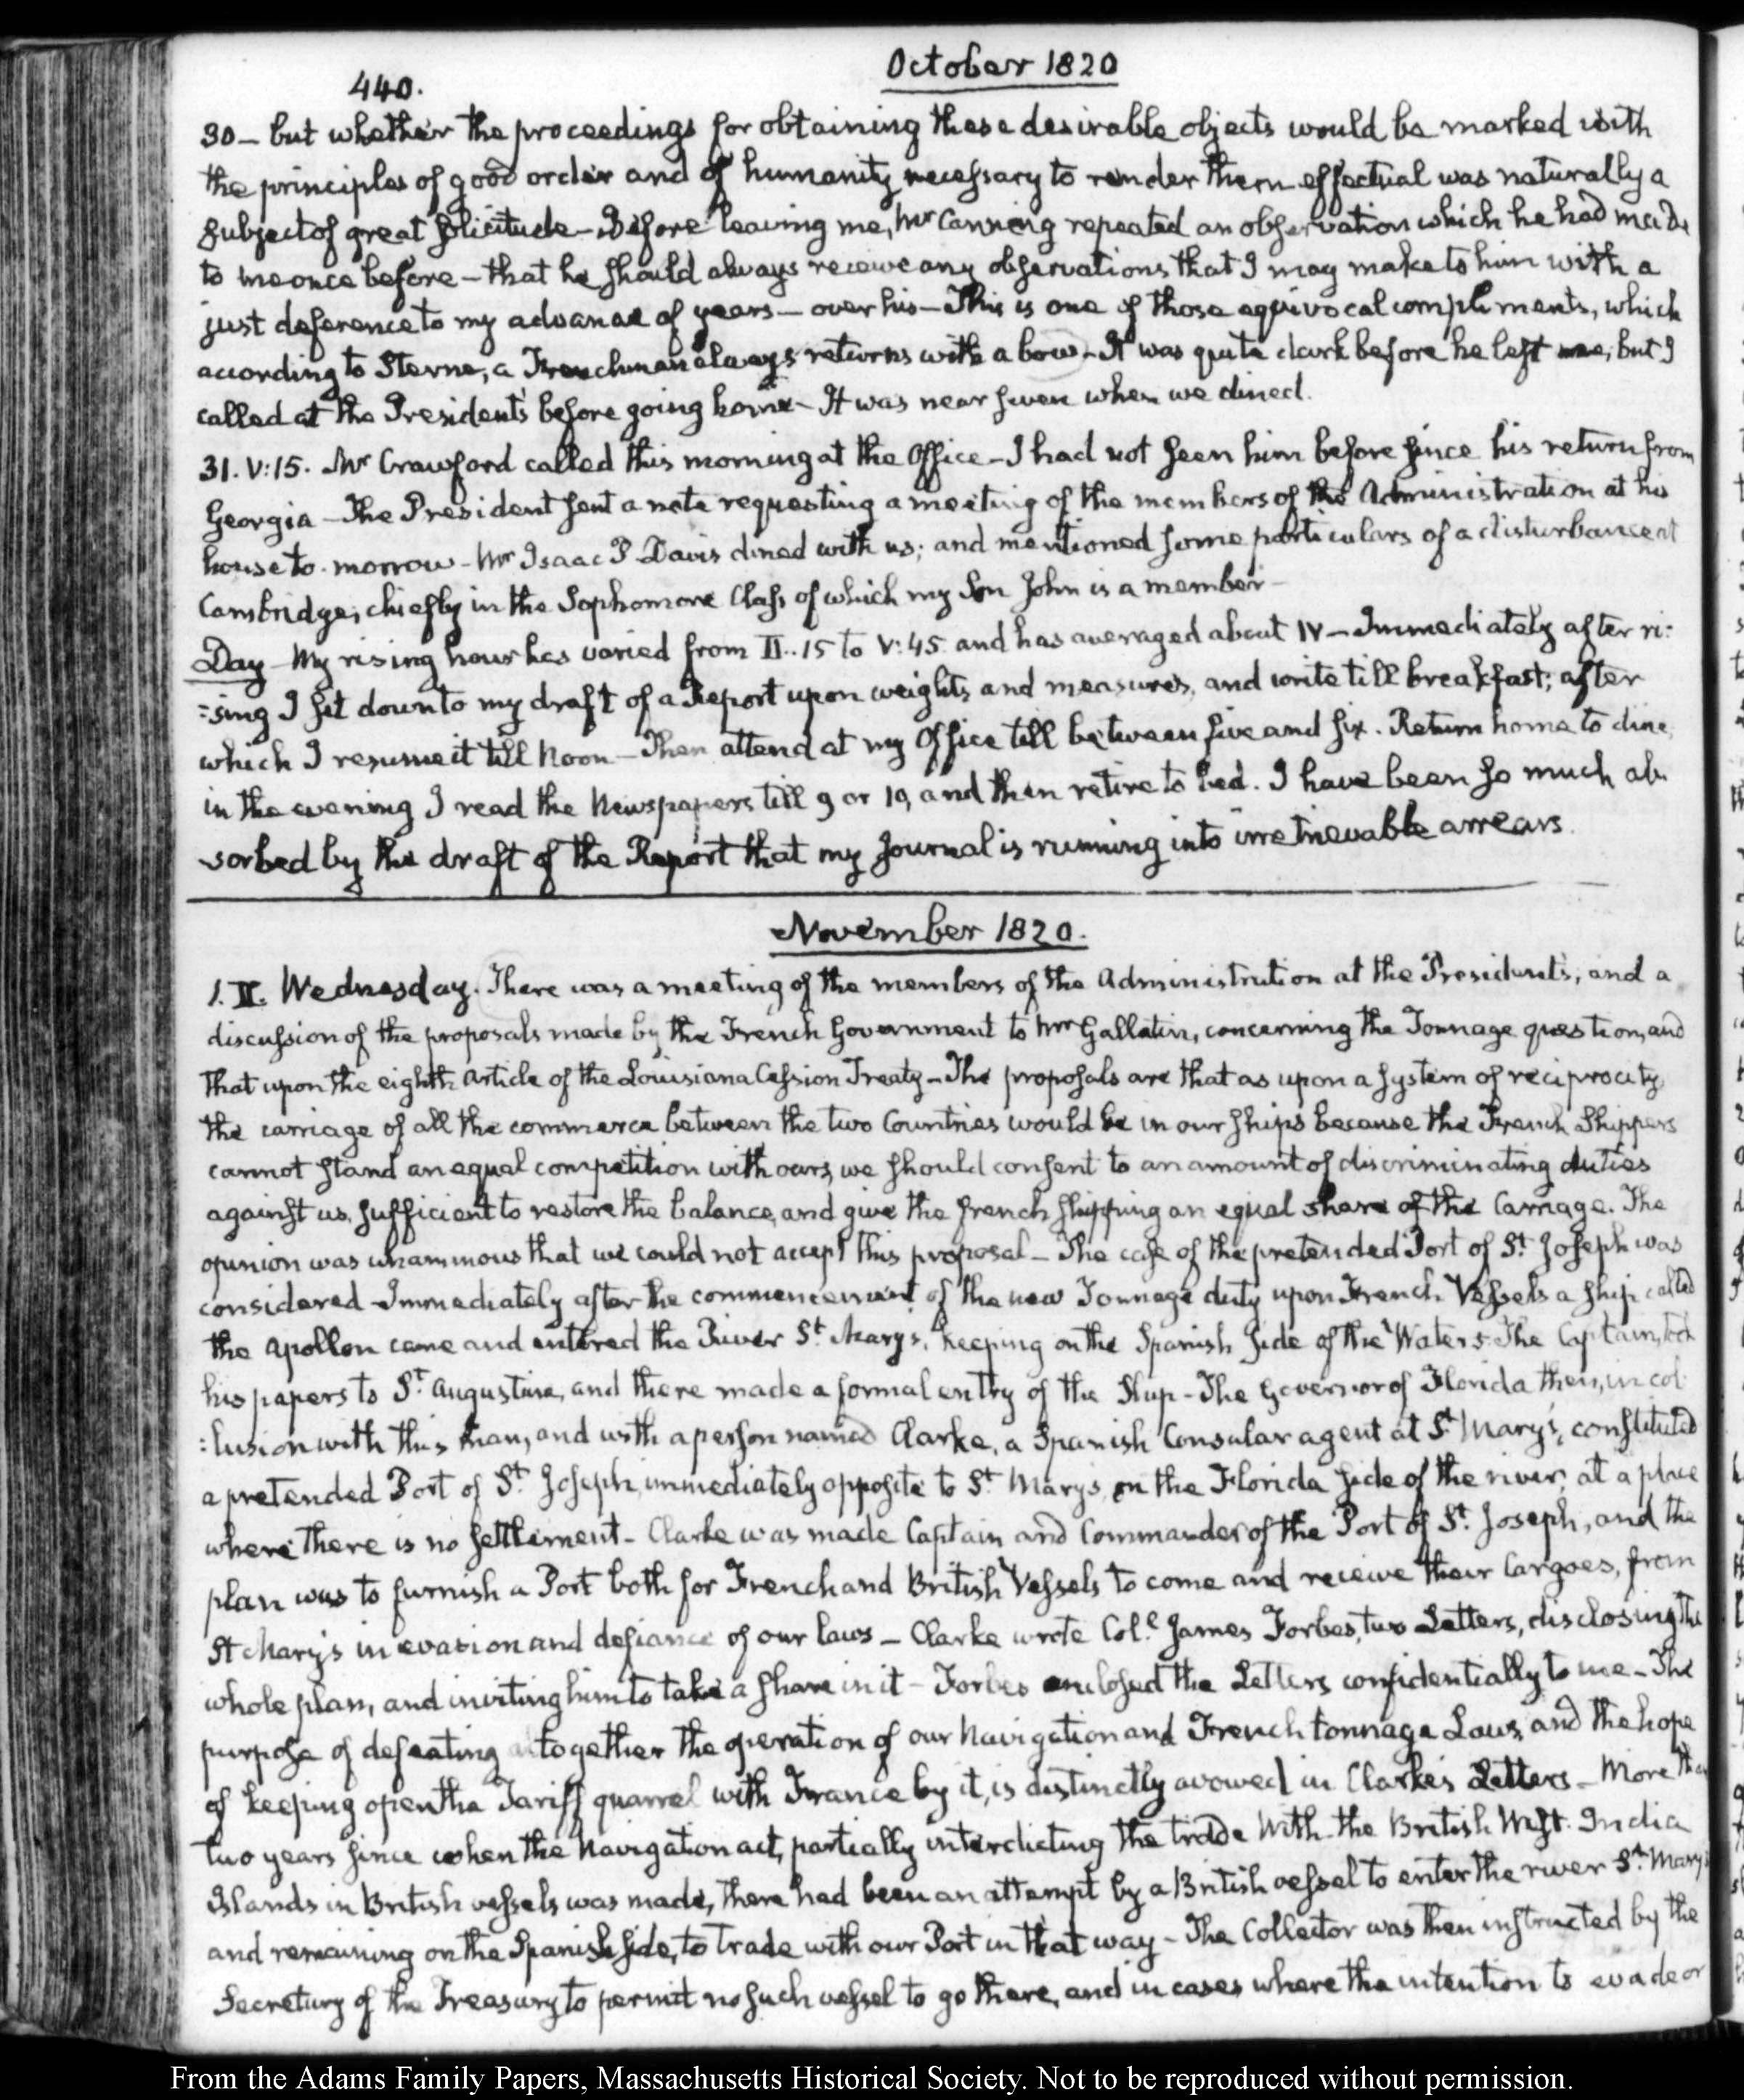 440.
October 1820
30 – but whether the proceedings for obtaining these desirable objects would be marked with
the principles of good order and of humanity necessary to render them effectual was naturally a
subject of great solicitude – Before leaving me, Mr Canning repeated an observation which he had made
to me once before – that he should always receive any observations that I may make to him with a
just deference to my advance of years – over his – This is one of those equivocal compliments, which
according to Sterne, a Frenchman always returns with a bow – It was quite dark before he left me, but I
called at the President's before going home – It was near seven when we dined.
31. V:15. Mr Crawford called this morning at the Office – I had not seen him before since his return from
Georgia – The President sent a note requesting a meeting of the members of the Administration at his
house to-morrow – Mr Isaac P Davis dined with us; and mentioned some particulars of a disturbance at
Cambridge, chiefly in the Sophomore Class of which my Son John is a member –
Day – My rising hour has varied from II..15 to V:45 and has averaged about IV – Immediately after ri:
:sing I sit down to my draft of a Report upon weights and measures, and write till breakfast; after
which I resume it till Noon – Then attend at my Office till between five and six. Return home to dine,
in the evening I read the Newspapers till 9 or 10, and then retire to bed. I have been so much ab-
sorbed by the draft of the Report that my Journal is running into irretrievable arrears
November 1820.
1. II. Wednesday. There was a meeting of the members of the Administration at the President's, and a
discussion of the proposals made by the French Government to Mr Gallatin, concerning the Tonnage question, and
that upon the eighth Article of the Louisiana Cession Treaty – The proposals are that as upon a system of reciprocity
the carriage of all the commerce between the two Countries would be in our ships because the French Shippers
cannot stand an equal competition with ours, we should consent to an amount of discriminating duties
against us, sufficient to restore the balance, and give the French shipping an equal share of the Carriage. The
opinion was unanimous that we could not accept this proposal – The case of the pretended Port of St. Joseph was
considered – Immediately after the commencement of the new Tonnage duty upon French Vessels a ship called
the Apollon came and entered the River St. Mary's, keeping on the Spanish side of the Waters. The Captain, took
his papers to St. Augustine, and there made a formal entry of the Ship – The Governor of Florida then, in col
:lusion with this man, and with a person named Clarke, a Spanish Consular agent at St Mary's, constituted
a pretended Port of St. Joseph, immediately opposite to St. Mary's on the Florida side of the river, at a place
where there is no settlement – Clarke was made Captain and Commander of the Port of St. Joseph, and the
plan was to furnish a Port both for French and British Vessels to come and receive their Cargoes, from
St Mary's in evasion and defiance of our laws – Clarke wrote Col.l James Forbes, two Letters, disclosing the
whole plan, and inviting him to take a share in it – Forbes enclosed the Letters confidentially to me – The
purpose of defeating altogether the operation of our Navigation and French tonnage Laws, and the hope
of keeping open the Tariff quarrel with France by it, is distinctly avowed in Clarke's Letters – More than
two years since when the Navigation act, partially interdicting the trade with the British West India
Islands in British vessels was made, there had been an attempt by a British vessel to enter the river St. Mary's
and remaining on the Spanish side, to trade with our Port in that way – The Collector was then instructed by the
Secretary of the Treasury to permit no such vessel to go there, and in cases where the intention to evade or
From the Adams Family Papers, Massachusetts Historical Society. Not to be reproduced without permission.